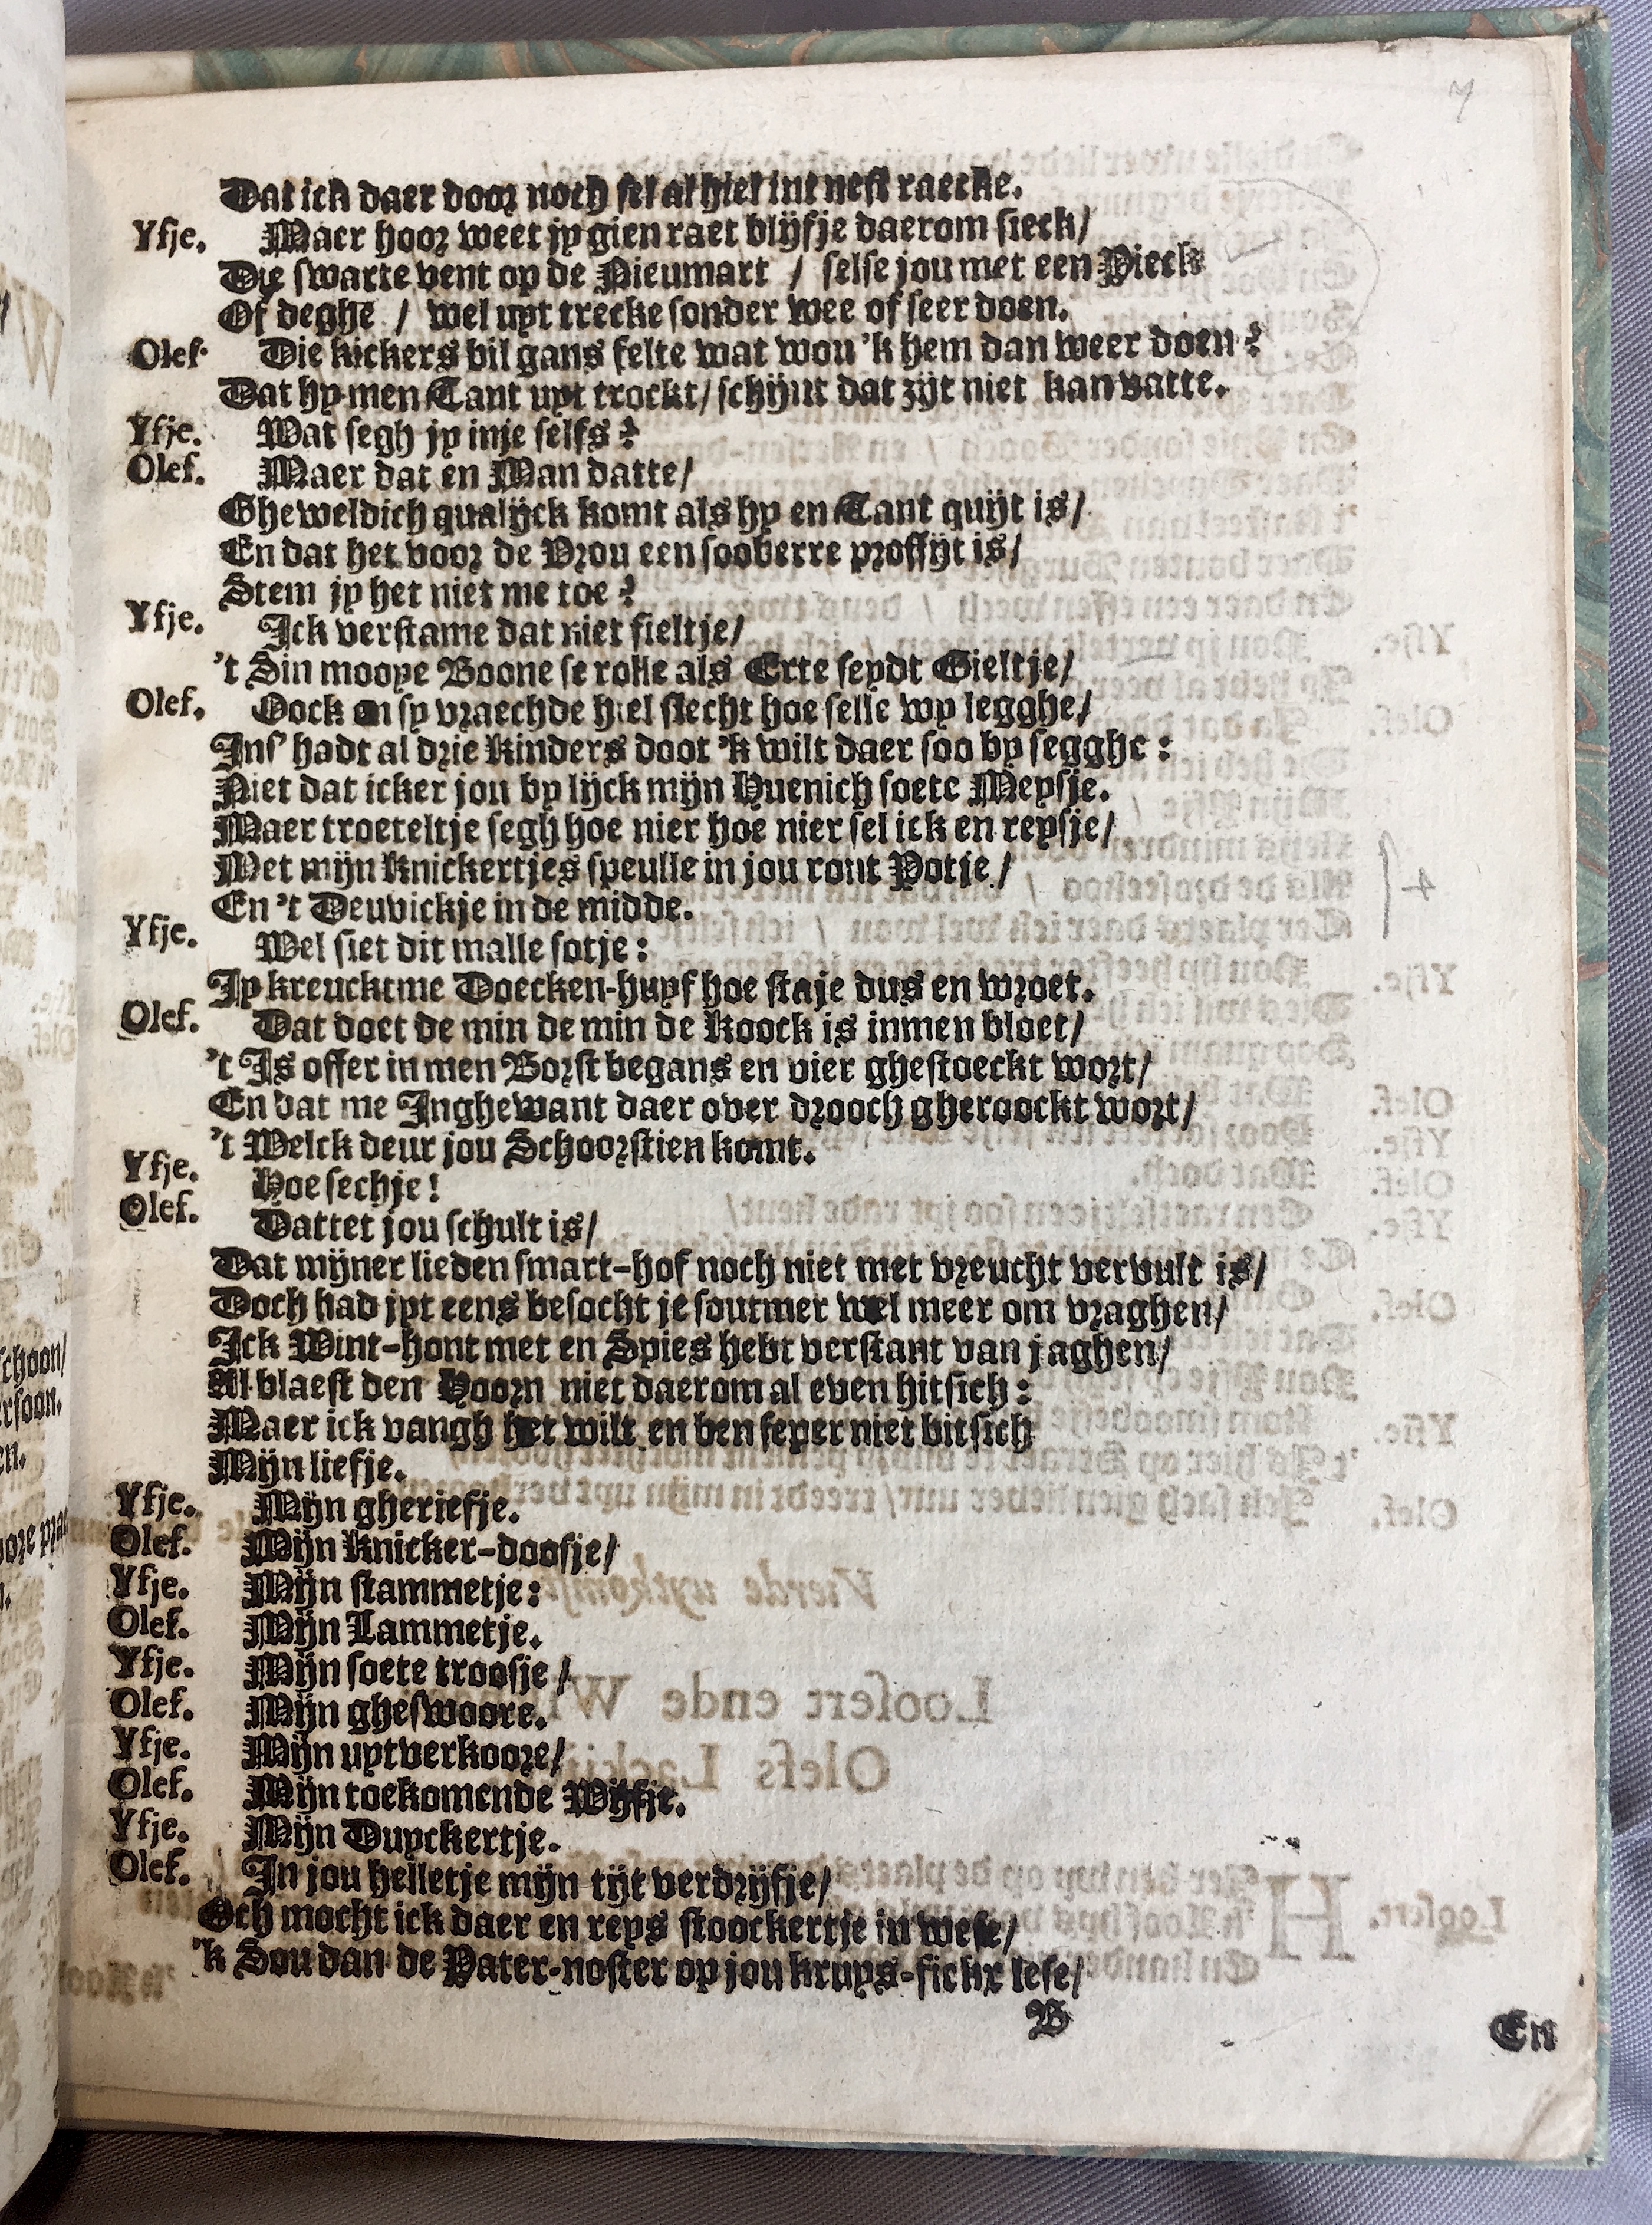 7
Dat ick daer door noch sel al hiel int nest raecke.
Yfje. Maer hoor weet jy gien raet blijfje daerom sieck/
Die swarte vent op de Nieumart / selse jou met een Pieck
Of deghē / wel uyt trecke sonder wee of seer doen.
Olef. Die kickers bil gans felte wat wou 'k hem dan weer doen?
Dat hy men Tant uyt trockt/ schijnt dat zijt niet kan vatte.
Yfje. Wat segh jy inje selfs?
Olef. Maer dat en Man datte/
Gheweldich qualijck komt als hy en Tant quijt is/
En dat het voor de Vrou een sooberre proffijt is/
Stem jy het niet me toe?
Yfje. Ick verstame dat niet fieltje/
't Sin mooye Boone se rolle als Erte seydt Gieltje/
Olef. Oock en sy vraechde hiel slecht hoe selle wy legghe/
Ins' hadt al drie kinders doot 'k wilt daer soo by segghe:
Niet dat icker jou by lijck mijn Huenich soete Meysje.
Maer troeteltje segh hoe nier hoe nier sel ick en reysje/
Met mijn knickertjes speulle in jou ront Potje/
En 't Deuvickje in de midde.
Yfje. Wel siet dit malle sotje:
Jy kreucktme Doecken-huyf hoe staje dus en wroet.
Olef. Dat doet de min de min de Koock is inmen bloet/
't Is offer in men Borst begans en vier ghestoeckt wort/
En dat me Inghewant daer over drooch gheroockt wort/
't Welck deur jou Schoorstien komt.
Yfje. Hoe sechje!
Olef. Dattet jou schult is/
Dat mijner lieden smart-hof noch niet met vreucht vervult is/
Doch had jyt eens besocht je soutmer wel meer om vraghen/
Ick Wint-hont met en Spies hebt verstant van jaghen/
Al blaest den Hoorn niet daerom al even hitsich:
Maer ick vangh het wilt en ben seper niet bitsich
Mijn liefje.
Yfje. Mijn gheriefje.
Olef. Mijn Knicker-doosje/
Yfje. Mijn stammetje:
Olef. Mijn Lammetje.
Yfje. Mijn soete troosje/
Olef. Mijn gheswoore.
Yfje. Mijn uytverkoore/
Olef. Mijn toekomende Wijfje.
Yfje. Mijn Duyckertje.
Olef. In jou helletje mijn tijt verdrijfje/
Och mocht ick daer en reys stoockertje in wese/
'k Sou dan de Pater-noster op jou kruys-fickx lese/
B
En